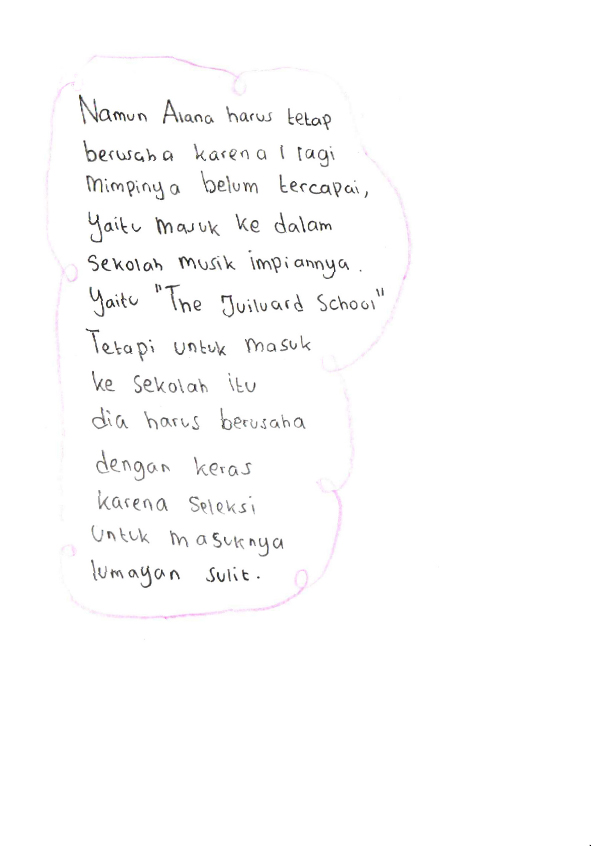 Namun Alana harus tetap
berusaha karena 1 lagi
mimpinya belum tercapai,
yaitu masuk ke dalam
sekolah musik impiannya.
yaitu "The Juilward School"
Tetapi untuk masuk
ke sekolah itu
dia harus berusaha
dengan keras
karena seleksi
untuk masuknya
lumayan sulit.